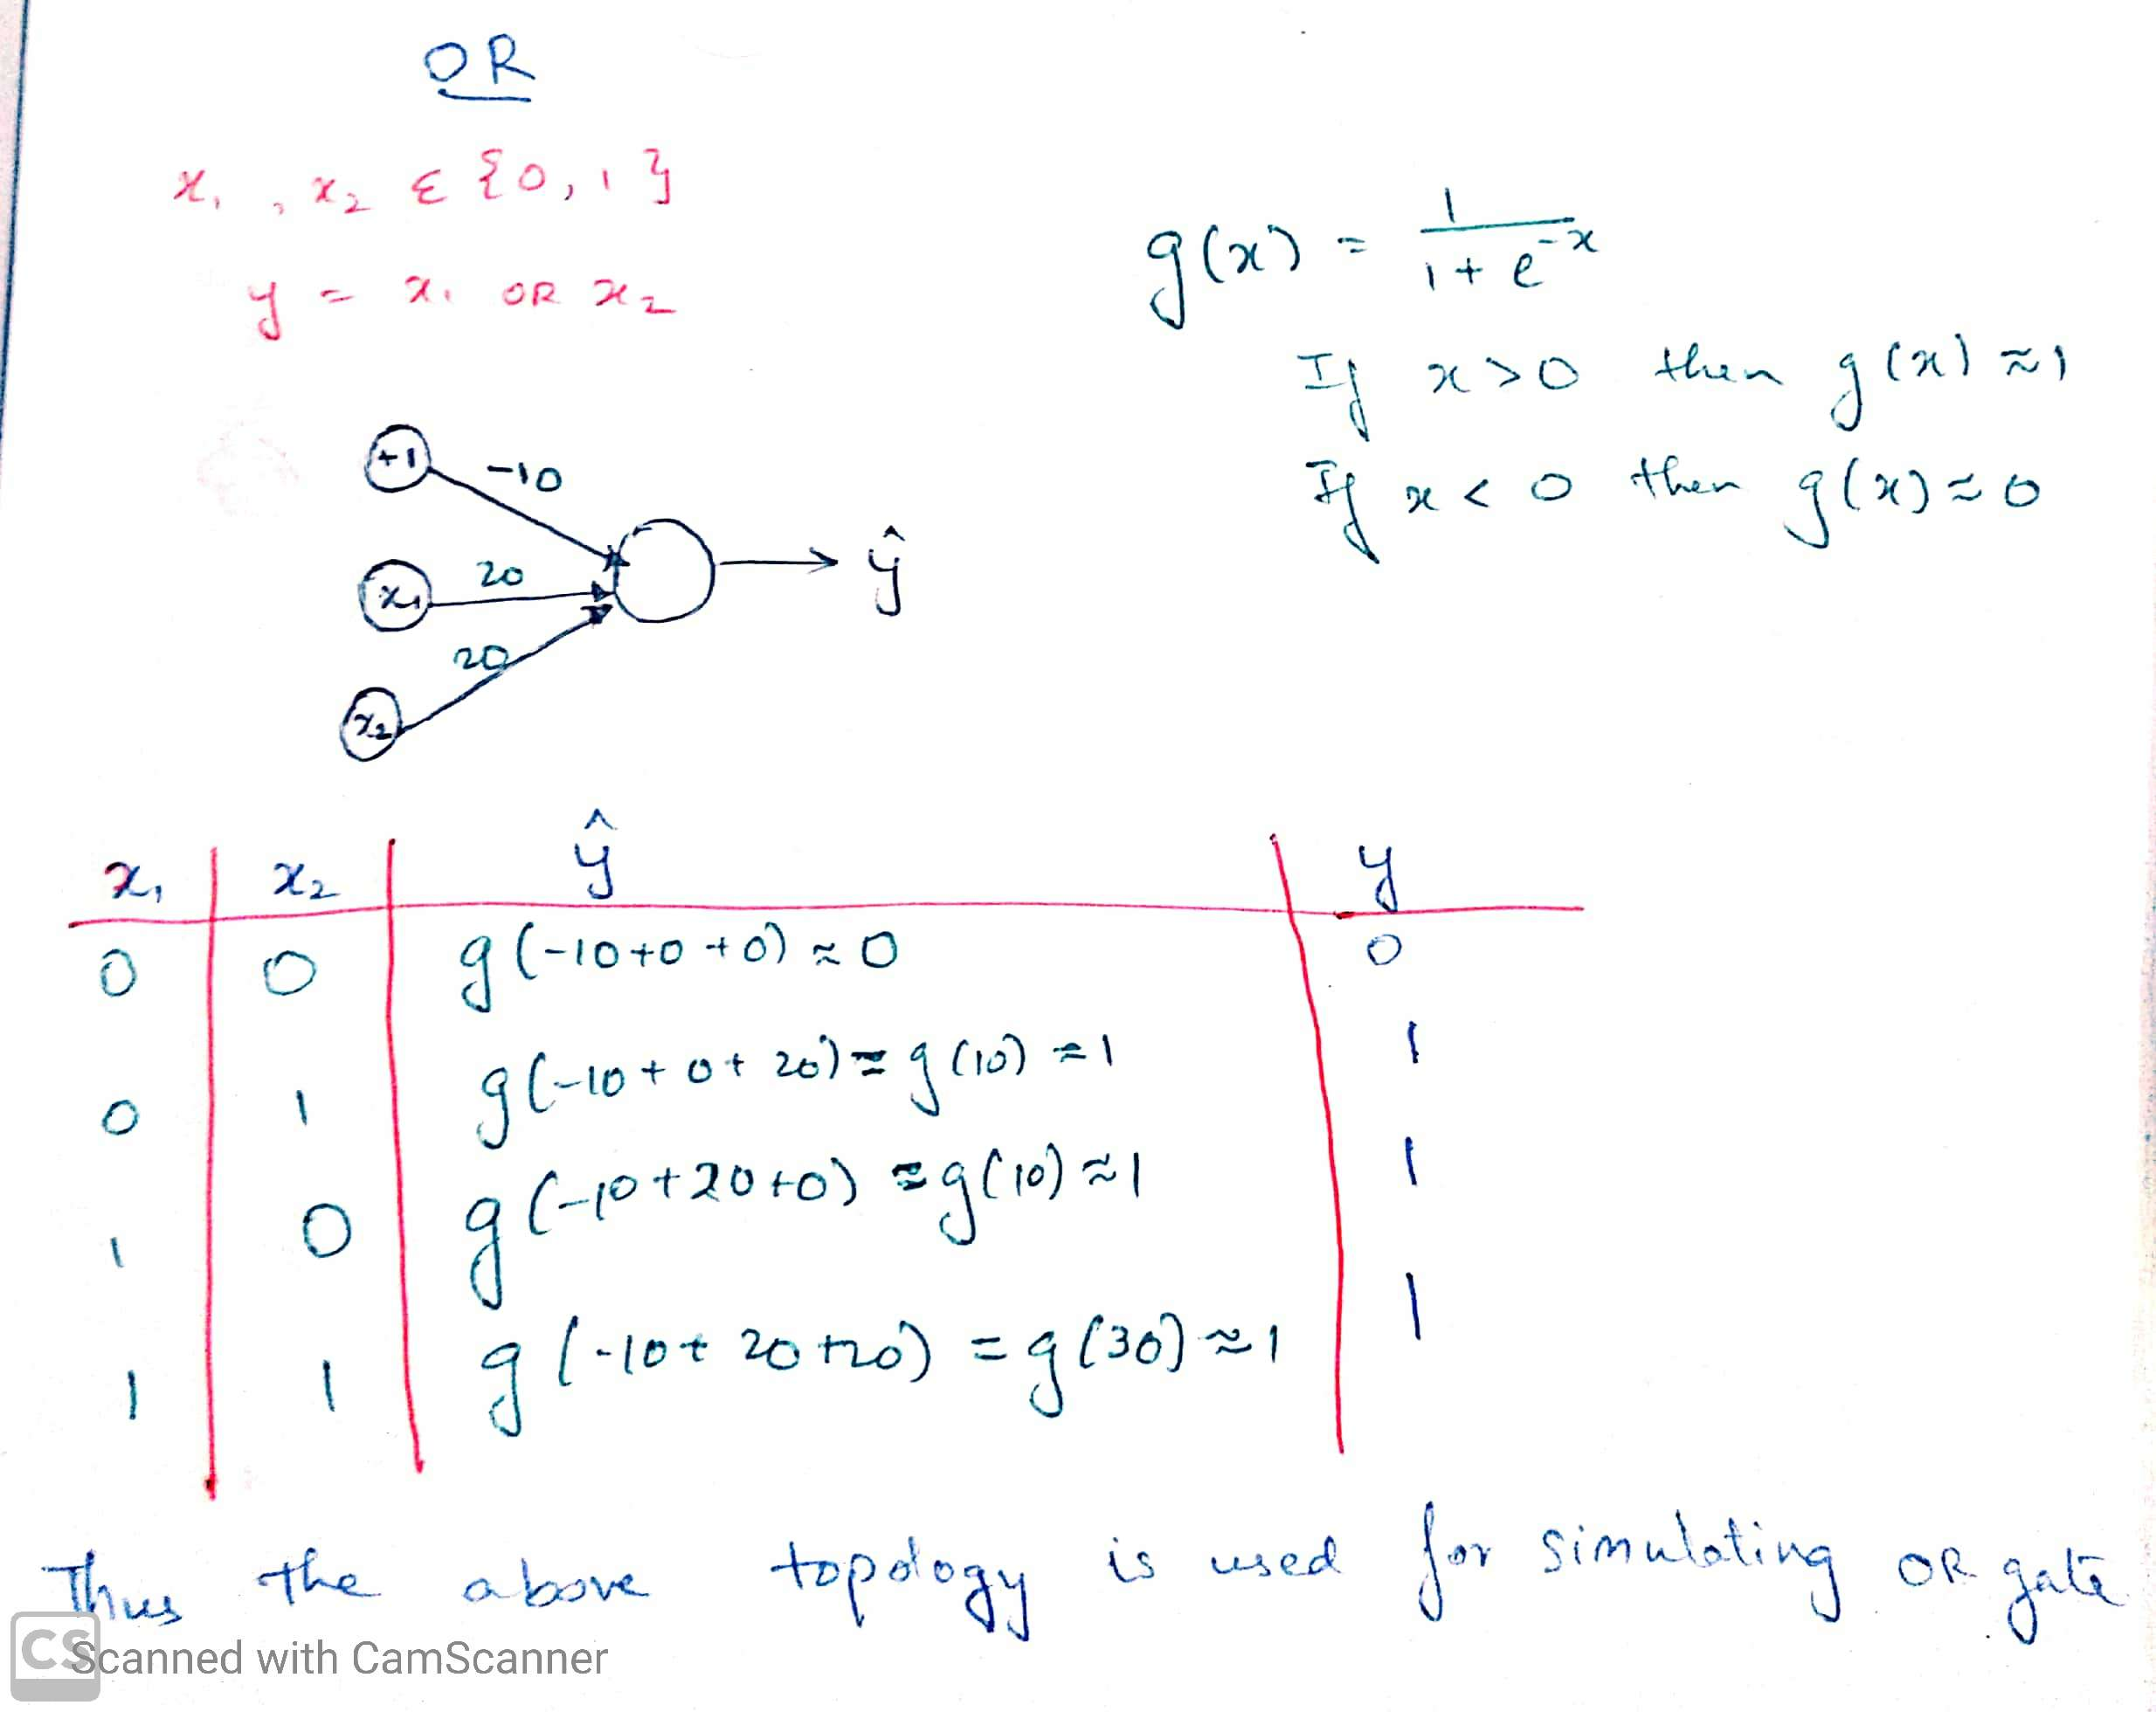 OR
x₁, x₂ ε {0, 1}
y = x₁ OR x₂
g(x) = 1 / (1 + e^-x)
If x > 0 then g(x) ≈ 1
If x < 0 then g(x) ≈ 0
+1 -10
x₁ 20 ŷ
x₂ 20
x₁ x₂ ŷ y
0 0 g(-10+0+0) ≈ 0 0
0 1 g(-10+0+20) = g(10) ≈ 1 1
1 0 g(-10+20+0) = g(10) ≈ 1 1
1 1 g(-10+20+20) = g(30) ≈ 1 1
Thus the above topology is used for simulating OR gate
CS Scanned with CamScanner